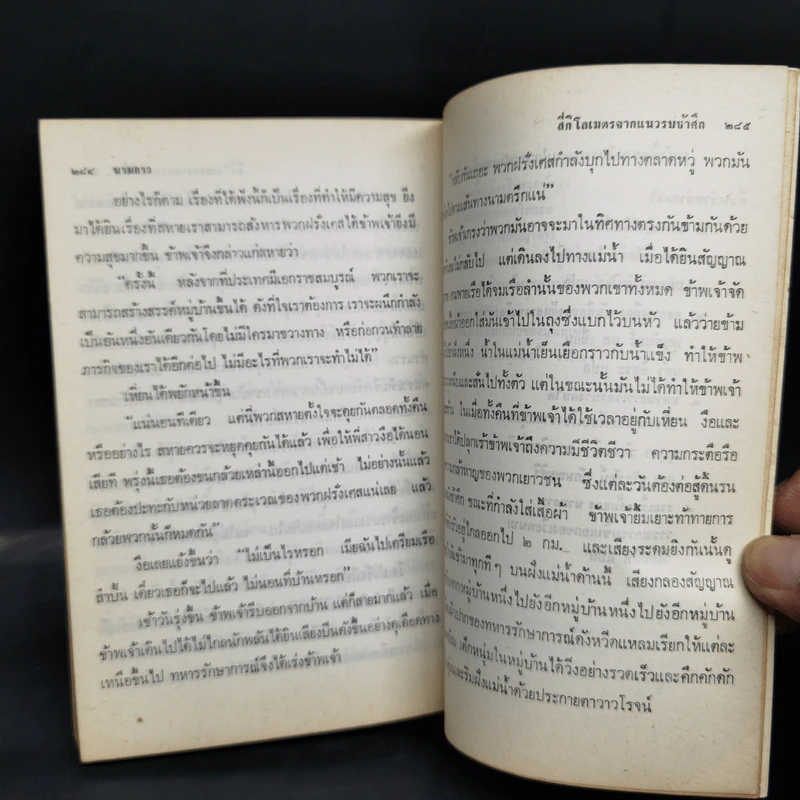 ๒๘๔ นามกาว
อย่างไรก็ตาม เรื่องที่ได้ฟังนี้ก็เป็นเรื่องที่ทำให้มีความสุข ยิ่ง
มาได้ยินเรื่องที่สหายเราสามารถสังหารพวกฝรั่งเศสได้ข้าพเจ้ายิ่งมี
ความสุขมากขึ้น ข้าพเจ้าจึงกล่าวแก่สหายว่า
"ครั้งนี้ หลังจากที่ประเทศมีเอกราชสมบูรณ์ พวกเราจะ
สามารถสร้างสรรค์หมู่บ้านขึ้นได้ ดังที่ใจเราต้องการ เราจะผนึกกำลัง
เป็นอันหนึ่งอันเดียวกันโดยไม่มีใครมาขวางทาง หรือก่อกวนทำลาย
ภารกิจของเราได้อีกต่อไป ไม่มีอะไรที่พวกเราจะทำไม่ได้"
เหี่ยนได้พยักหน้าขึ้น
"แน่นอนทีเดียว แต่นี่พวกสหายตั้งใจจะคุยกันตลอดทั้งคืน
หรืออย่างไร สหายควรจะหยุดคุยกันได้แล้ว เพื่อให้พี่สาวงือได้นอน
เสียที พรุ่งนี้เธอต้องขนกล้วยเหล่านี้ออกไปแต่เช้า ไม่อย่างนั้นแล้ว
เธอต้องปะทะกับหน่วยลาดตระเวณของพวกฝรั่งเศสแน่เลย แล้ว
กล้วยพวกนั้นก็หมดกัน"
งือเลยแย้งขึ้นว่า "ไม่เป็นไรหรอก เมียฉันไปเตรียมเรือ
สำปั้น เดี๋ยวเธอก็จะไปแล้ว ไม่นอนที่บ้านหรอก"
เช้าวันรุ่งขึ้น ข้าพเจ้ารีบออกจากบ้าน แต่ก็สายมากแล้ว เมื่อ
ข้าพเจ้าเดินไปได้ไม่ไกลนักพลันได้ยินเสียงปืนดังขึ้นอย่างดุเดือดทาง
เหนือขึ้นไป ทหารรักษาการณ์จึงได้เร่งข้าพเจ้า
สี่กิโลเมตรจากแนวรบข้าศึก ๒๘๕
พวกฝรั่งเศสกำลังบุกไปทางตลาดหวู่ พวกมัน
ตามเส้นทางนามตรึกแน่"
ข้าพเจ้าเกรงว่าพวกมันอาจจะมาในทิศทางตรงกันข้ามกันด้วย
ไม่กลับไป แต่เดินลงไปทางแม่น้ำ เมื่อได้ยินสัญญาณ
คนพายเรือได้จมเรือลำนั้นของพวกเขาทั้งหมด ข้าพเจ้าจัด
ผ้าออกใส่มันเข้าไปในถุงซึ่งแบกไว้บนหัว แล้วว่ายข้าม
ฝั่งหนึ่ง น้ำในแม่น้ำเย็นเยือกราวกับน้ำแข็ง ทำให้ข้าพ
และสั่นไปทั้งตัว แต่ในขณะนั้นมันไม่ได้ทำให้ข้าพเจ้า
ในเมื่อทั้งคืนที่ข้าพเจ้าได้ใช้เวลาอยู่กับเหี่ยน งือและ
ได้ปลุกเร้าข้าพเจ้าถึงความมีชีวิตชีวา ความกระตือรือ
กล้าหาญของพวกเยาวชน ซึ่งแต่ละวันต้องต่อสู้ดิ้นรน
ข้าศึก ขณะที่กำลังใส่เสื้อผ้า ข้าพเจ้ายิ้มเยาะท้าทายการ
อยู่ไกลออกไป ๒ กม. และเสียงระดมยิงกันนั้นดู
ใกล้เข้ามาทุกทีๆ บนฝั่งแม่น้ำด้านนี้ เสียงกลองสัญญาณ
จากหมู่บ้านหนึ่งไปยังอีกหมู่บ้านหนึ่งไปยังอีกหมู่บ้าน
ของทหารรักษาการณ์ดังหวีดแหลมเรียกให้แต่ละ
เด็กหนุ่มในหมู่บ้านได้วิ่งอย่างรวดเร็วและคึกคักดัก
และริมฝั่งแม่น้ำด้วยประกายตาวาวโรจน์